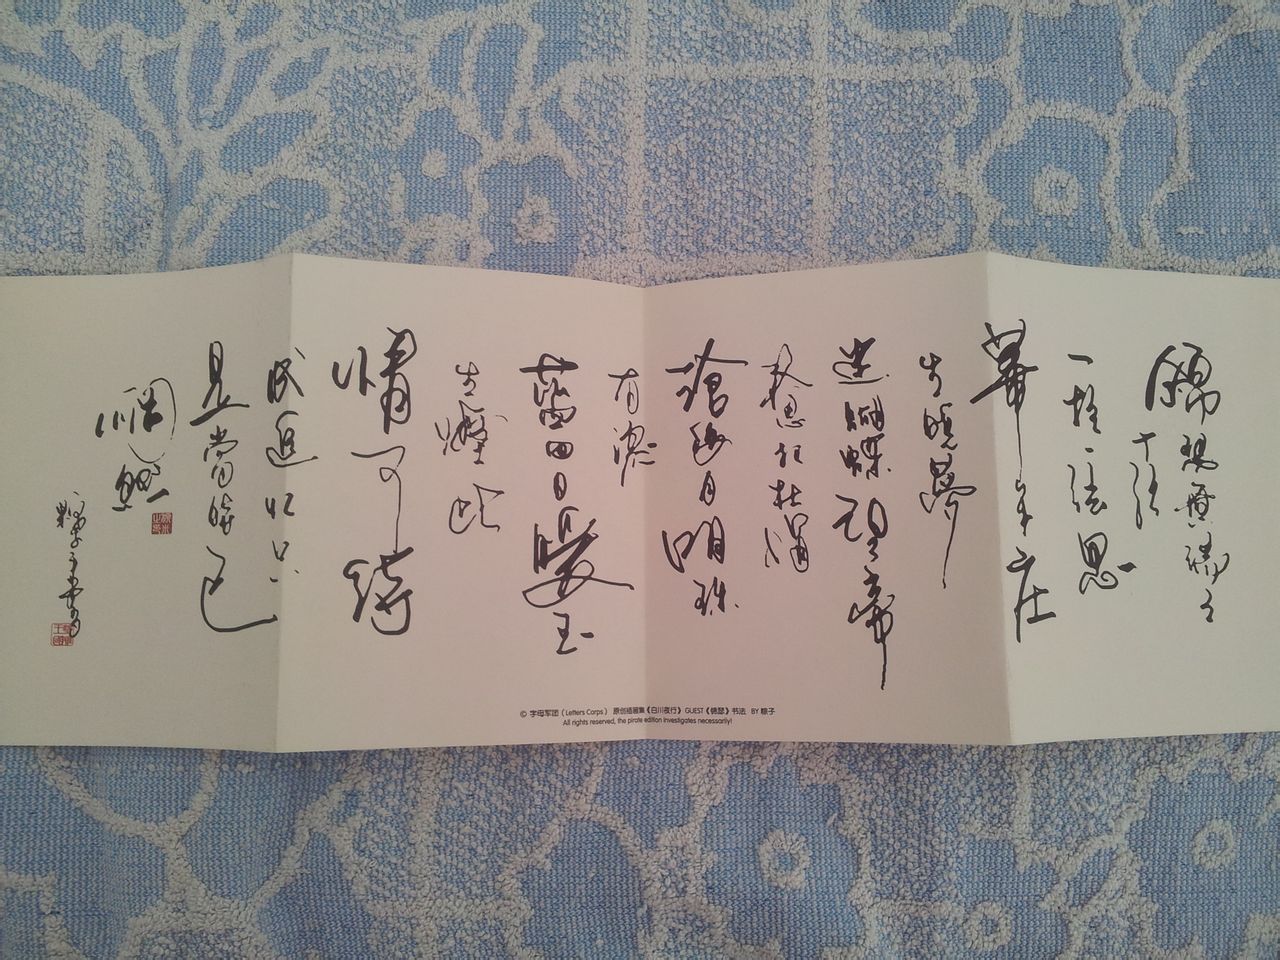 錦瑟無端五
十弦
一柱一弦思
華年莊
生曉夢
迷蝴蝶望帝
春心托杜鵑
滄海月明珠
有淚
藍田日暖玉
生煙此
情可待
成追憶只
是當時已
惘然
粽子書
© 字母军团（Letters Corps） 原创插画集《白川夜行》 GUEST《锦瑟》书法 BY 粽子
All rights reserved, the pirate edition investigates necessarily!